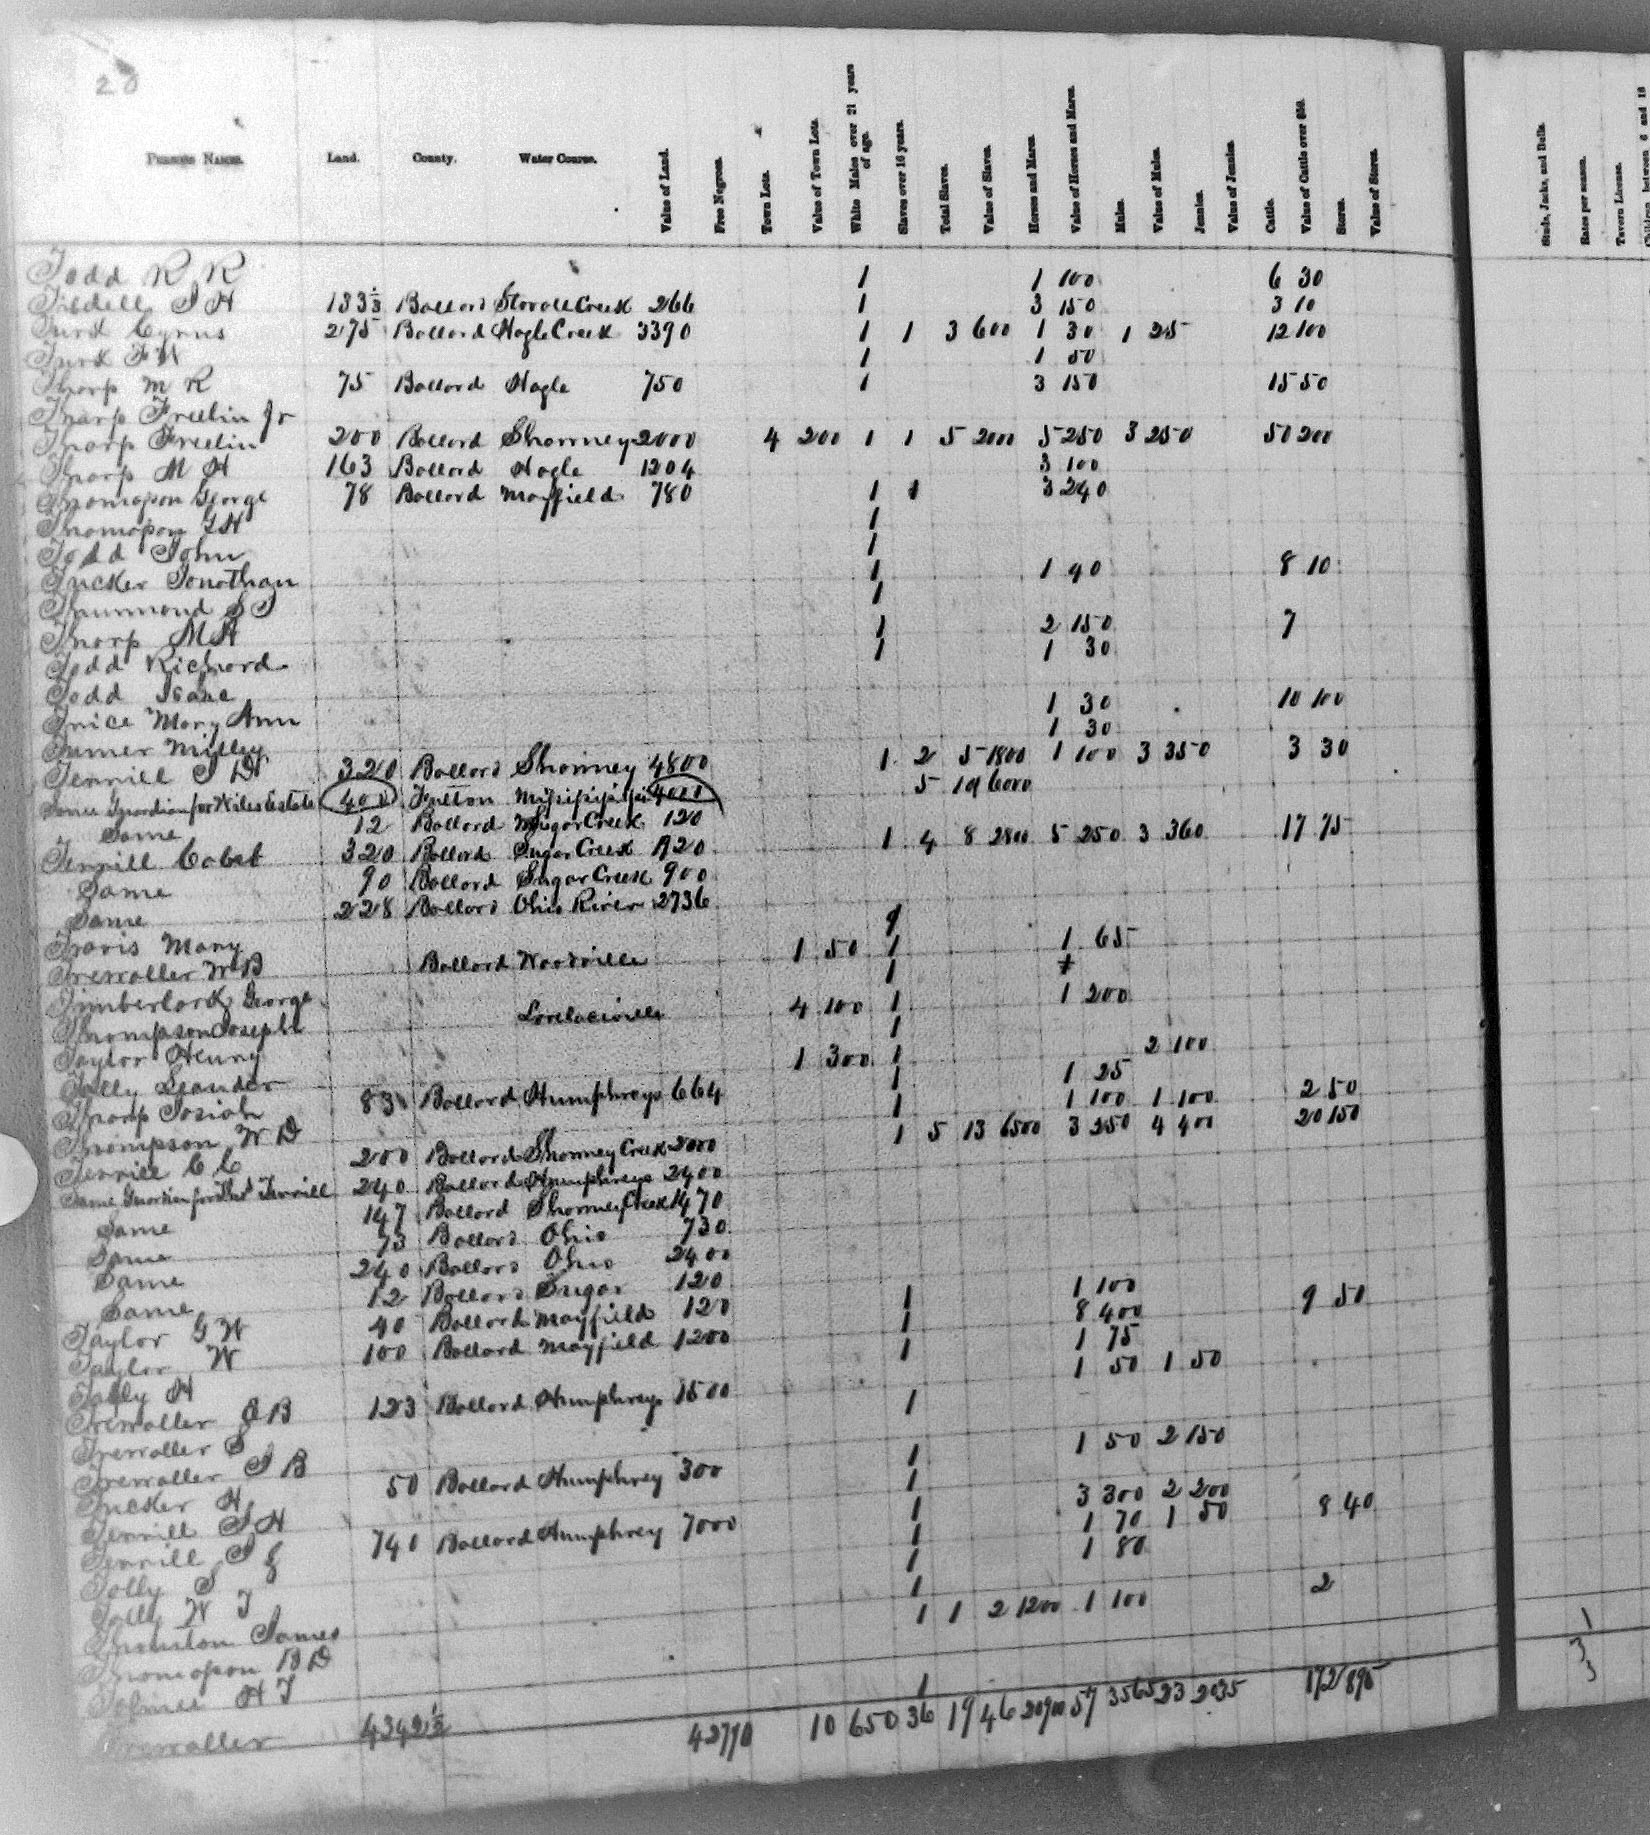 20
Persons Names. Land. County. Water Course. Value of Land. Free Negroes. Town Lots. Value of Town Lots. White Males over 21 years of age. Slaves over 16 years. Total Slaves. Value of Slaves. Horses and Mares. Value of Horses and Mares. Mules. Value of Mules. Jennies. Value of Jennies. Cattle. Value of Cattle over $50. Stores. Value of Stores. Studs, Jacks, and Bulls. Rates per season. Tavern License. Children between 6 and 18
Todd R R 1 1 100 6 30
Tisdell J H 133 1/3 Ballard Stovall Creek 266 1 3 150 3 10
Turk Cyrus 275 Ballard Hogle Creek 3390 1 1 3 600 1 30 1 25 12 100
Turk F W 1 1 50
Tharp M R 75 Ballard Hagle 750 1 3 150 15 50
Tharp Freelin Jr
Tharp Freelin 200 Ballard Shawney 2000 4 200 1 1 5 2000 5 250 3 250 50 200
Tharp M H 163 Ballard Hagle 1204 3 100
Thompson George 78 Ballard Mayfield 780 1 1 3 240
Thompson J H 1
Todd John 1
Tucker Jonathan 1 1 40 8 10
Thurmond S J 1
Tharp M A 1 2 150 7
Todd Richard 1 1 30
Todd Isaac
Trice Mary Ann 1 30 10 100
Turner Milley 1 30
Terrill J D 320 Ballard Shawney 4800 1 2 5 1800 1 100 3 350 3 30
Same Guardian for Niles Estate 400 Fulton Mississippi 4000 5 19 6000
Same 12 Ballard Sugar Creek 120
Terrill Cabet 320 Ballard Sugar Creek 1920 1 4 8 2800 5 250 3 360 17 75
Same 90 Ballard Sugar Creek 900
Same 228 Ballard Ohio River 2736
Travis Mary
Trewaller W B Ballard Woodville 1 50 1 1 65
Timberlack George 1
Thompson Joseph Lovelaceville 4 100 1 1 200
Taylor Henry 1
Tally Leander 1 300 1 2 100
Tharp Josiah 83 Ballard Humphreys 664 1 1 25
Thompson W D 1 1 100 1 100 2 50
Terrill C C 200 Ballard Shawney Creek 2000 1 5 13 6500 3 250 4 400 20 150
Same Guardian for Thos Terrill 240 Ballard Humphreys 2400
Same 147 Ballard Shawney Creek 1470
Same 73 Ballard Ohio 730
Same 240 Ballard Ohio 2400
Same 12 Ballard Sugar 120
Taylor G W 40 Ballard Mayfield 120 1 1 100
Taylor W 100 Ballard Mayfield 1200 1 8 400 9 50
Tally H 1 1 75
Trewaller J B 123 Ballard Humphreys 1500 1 50 1 50
Trewaller S 1
Trewaller J B
Tucker H 50 Ballard Humphrey 300 1 1 50 2 150
Terrill J H 1
Terrill J 740 Ballard Humphrey 7000 1 3 300 2 200
Tolly S 1 1 70 1 50 8 40
Tolly W J 1 1 80
Thurston James 1
Thompson B D 1 1 2 1200 1 100 2
Tolmes H T
Trewaller 1
4342 1/2 42790 10 650 36 19 46 20900 57 3565 23 2035 172 895
1
3
3